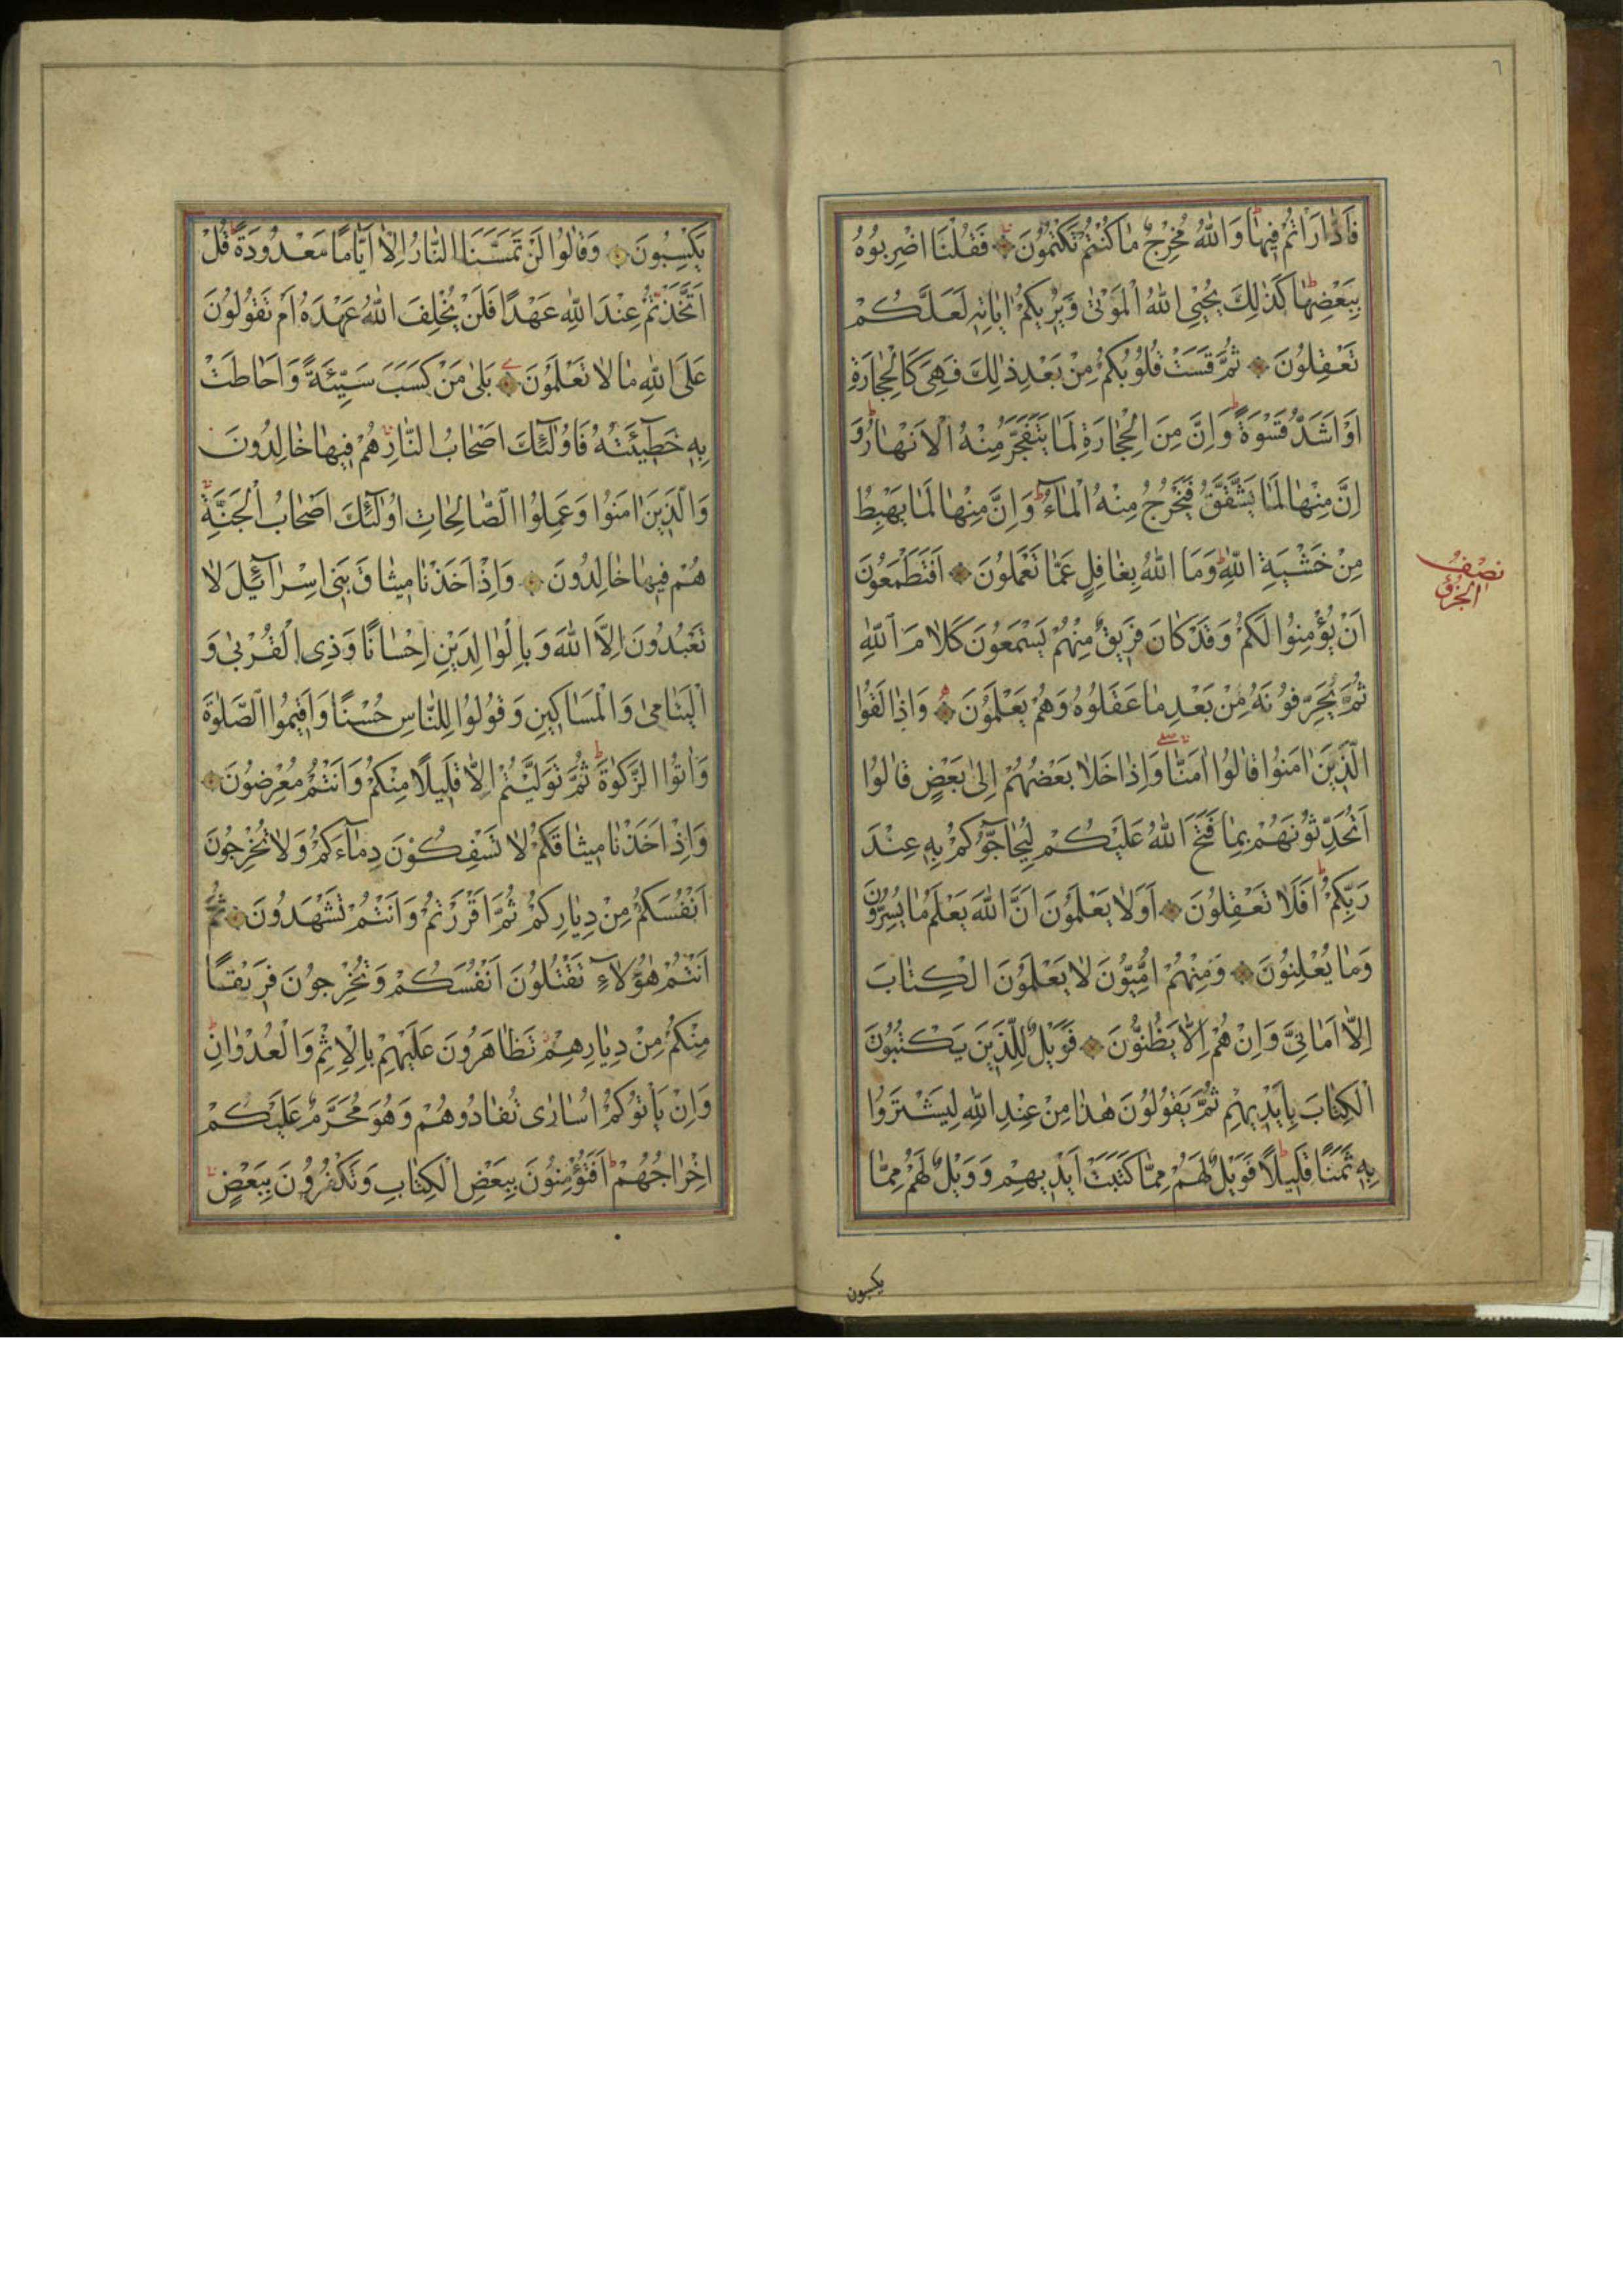 ٦
فَادّٰارَاْتُمْ فٖيهٰا وَاللّٰهُ مُخْرِجٌ مٰا كُنْتُمْ تَكْتُمُونَ فَقُلْنَا اضْرِبُوُهُ
بِبَعْضِهٰا كَذٰلِكَ يُحْيِي اللّٰهُ الْمَوْتٰى وَيُرٖيكُمْ اٰيٰاتِهٖ لَعَلَّكُمْ
تَعْقِلُونَ ثُمَّ قَسَتْ قُلُوُبُكُمْ مِنْ بَعْدِ ذٰلِكَ فَهِىَ كَالْحِجٰارَةِ
اَوْ اَشَدُّ قَسْوَةً وَاِنَّ مِنَ الْحِجٰارَةِ لَمٰا يَتَفَجَّرُ مِنْهُ الْاَنْهٰارُ وَ
اِنَّ مِنْهٰا لَمٰا يَشَّقَّقُ فَيَخْرُجُ مِنْهُ الْمٰاءُ وَاِنَّ مِنْهٰا لَمٰا يَهْبِطُ
مِنْ خَشْيَةِ اللّٰهِ وَمَا اللّٰهُ بِغٰافِلٍ عَمّٰا تَعْمَلُونَ اَفَتَطْمَعُونَ
نِصْفُ الْجُزْؤِ
اَنْ يُؤْمِنُوُا لَكُمْ وَقَدْ كٰانَ فَرٖيقٌ مِنْهُمْ يَسْمَعُونَ كَلٰامَ اللّٰهِ
ثُمَّ يُحَرِّفُونَهُ مِنْ بَعْدِ مٰا عَقَلُوهُ وَهُمْ يَعْلَمُونَ وَاِذٰا لَقُوا
الَّذٖينَ اٰمَنُوُا قٰالُوُا اٰمَنّٰا وَاِذٰا خَلٰا بَعْضُهُمْ اِلىٰ بَعْضٍ قٰالُوُا
اَتُحَدِّثُونَهُمْ بِمٰا فَتَحَ اللّٰهُ عَلَيْكُمْ لِيُحٰاجُّوُكُمْ بِهٖ عِنْدَ
رَبِّكُمْ اَفَلَا تَعْقِلُونَ اَوَلٰا يَعْلَمُونَ اَنَّ اللّٰهَ يَعْلَمُ مٰا يُسِرُّونَ
وَمٰا يُعْلِنُوُنَ وَمِنْهُمْ اُمِّيُّونَ لٰا يَعْلَمُونَ الْكِتٰابَ
اِلّٰا اَمٰانِىَّ وَاِنْ هُمْ اِلّٰا يَظُنُّونَ فَوَيْلٌ لِلَّذٖينَ يَكْتُبُونَ
الْكِتٰابَ بِاَيْدٖيهِمْ ثُمَّ يَقُولُونَ هٰذٰا مِنْ عِنْدِ اللّٰهِ لِيَشْتَرُوُا
بِهٖ ثَمَنًا قَلٖيلًا فَوَيْلٌ لَهُمْ مِمّٰا كَتَبَتْ اَيْدٖيهِمْ وَوَيْلٌ لَهُمْ مِمّٰا
يكسبون
يَكْسِبُونَ وَقٰالُوُا لَنْ تَمَسَّنَا النّٰارُ اِلّٰا اَيّٰامًا مَعْدُودَةً قُلْ
اَتَّخَذْتُمْ عِنْدَ اللّٰهِ عَهْدًا فَلَنْ يُخْلِفَ اللّٰهُ عَهْدَهُ اَمْ تَقُولُونَ
عَلَى اللّٰهِ مٰا لٰا تَعْلَمُونَ بَلىٰ مَنْ كَسَبَ سَيِّئَةً وَاَحٰاطَتْ
بِهٖ خَطٖيٓئَتُهُ فَاُولٰٓئِكَ اَصْحٰابُ النّٰارِ هُمْ فٖيهٰا خٰالِدُونَ
وَالَّذٖينَ اٰمَنُوا وَعَمِلُوا الصّٰالِحٰاتِ اُولٰٓئِكَ اَصْحٰابُ الْجَنَّةِ
هُمْ فٖيهٰا خٰالِدُونَ وَاِذْ اَخَذْنٰا مٖيثٰاقَ بَنٖى اِسْرٰٓائٖيلَ لٰا
تَعْبُدُونَ اِلَّا اللّٰهَ وَبِالْوٰالِدَيْنِ اِحْسٰانًا وَذِى الْقُرْبىٰ وَ
الْيَتٰامىٰ وَالْمَسٰاكٖينِ وَقُولُوا لِلنّٰاسِ حُسْنًا وَاَقٖيمُوا الصَّلٰوةَ
وَاٰتُوا الزَّكٰوةَ ثُمَّ تَوَلَّيْتُمْ اِلّٰا قَلٖيلًا مِنْكُمْ وَاَنْتُمْ مُعْرِضُونَ
وَاِذْ اَخَذْنٰا مٖيثٰاقَكُمْ لٰا تَسْفِكُونَ دِمٰٓاءَكُمْ وَلٰا تُخْرِجُونَ
اَنْفُسَكُمْ مِنْ دِيٰارِكُمْ ثُمَّ اَقْرَرْتُمْ وَاَنْتُمْ تَشْهَدُونَ ثُمَّ
اَنْتُمْ هٰؤُلٰٓاءِ تَقْتُلُونَ اَنْفُسَكُمْ وَتُخْرِجُونَ فَرٖيقًا
مِنْكُمْ مِنْ دِيٰارِهِمْ تَظٰاهَرُونَ عَلَيْهِمْ بِالْاِثْمِ وَالْعُدْوٰانِ
وَاِنْ يَاْتُوكُمْ اُسٰارٰى تُفٰادُوهُمْ وَهُوَ مُحَرَّمٌ عَلَيْكُمْ
اِخْرٰاجُهُمْ اَفَتُؤْمِنُونَ بِبَعْضِ الْكِتٰابِ وَتَكْفُرُونَ بِبَعْضٍ